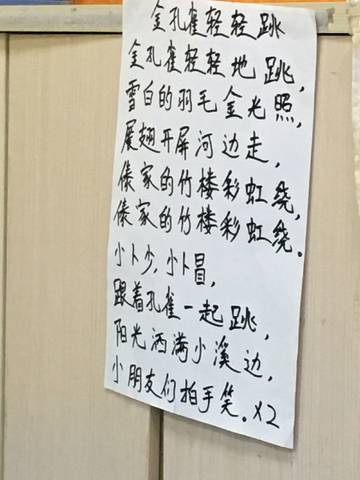 金孔雀轻轻跳
金孔雀轻轻地跳，
雪白的羽毛金光照，
展翅开屏河边走，
傣家的竹楼彩虹绕，
傣家的竹楼彩虹绕。
小卜少，小卜冒，
跟着孔雀一起跳，
阳光洒满小溪边，
小朋友们拍手笑。X2